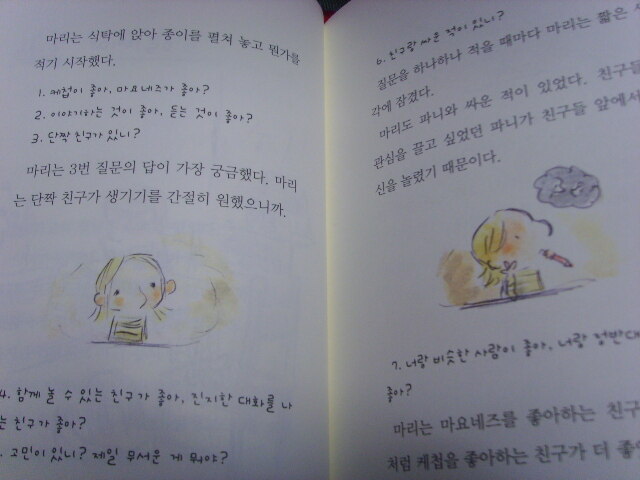 마리는 식탁에 앉아 종이를 펼쳐 놓고 뭔가를
적기 시작했다.
1. 케첩이 좋아, 마요네즈가 좋아?
2. 이야기하는 것이 좋아, 듣는 것이 좋아?
3. 단짝 친구가 있니?
마리는 3번 질문의 답이 가장 궁금했다. 마리
는 단짝 친구가 생기기를 간절히 원했으니까.
4. 함께 놀 수 있는 친구가 좋아, 진지한 대화를 나
는 친구가 좋아?
. 고민이 있니? 제일 무서운 게 뭐야?
6. 친구랑 싸운 적이 있니?
질문을 하나하나 적을 때마다 마리는 짧은
각에 잠겼다.
마리도 파니와 싸운 적이 있었다. 친구들
관심을 끌고 싶었던 파니가 친구들 앞에서
신을 놀렸기 때문이다.
7. 너랑 비슷한 사람이 좋아, 너랑 정반대
좋아?
마리는 마요네즈를 좋아하는 친구
처럼 케첩을 좋아하는 친구가 더 좋